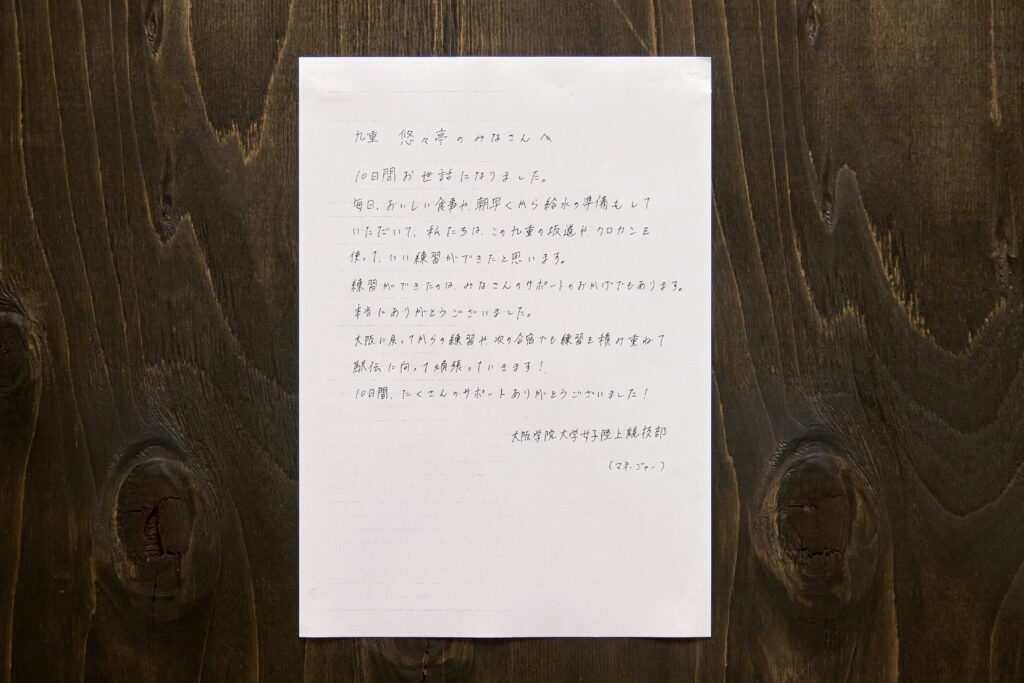 九重 悠々亭のみなさんへ
10日間お世話になりました。
毎日、おいしい食事や、朝早くから給水の準備もして
いただいて、私たちは、この九重の坂道や、クロカンを
使って、いい練習ができたと思います。
練習ができたのは、みなさんのサポートのおかげでもあります。
本当にありがとうございました。
大阪に戻ってからの練習や、次の合宿でも練習を積み重ねて
駅伝に向って頑張っていきます!
10日間、たくさんのサポートありがとうございました!
大阪学院大学女子陸上競技部
(マネージャー)